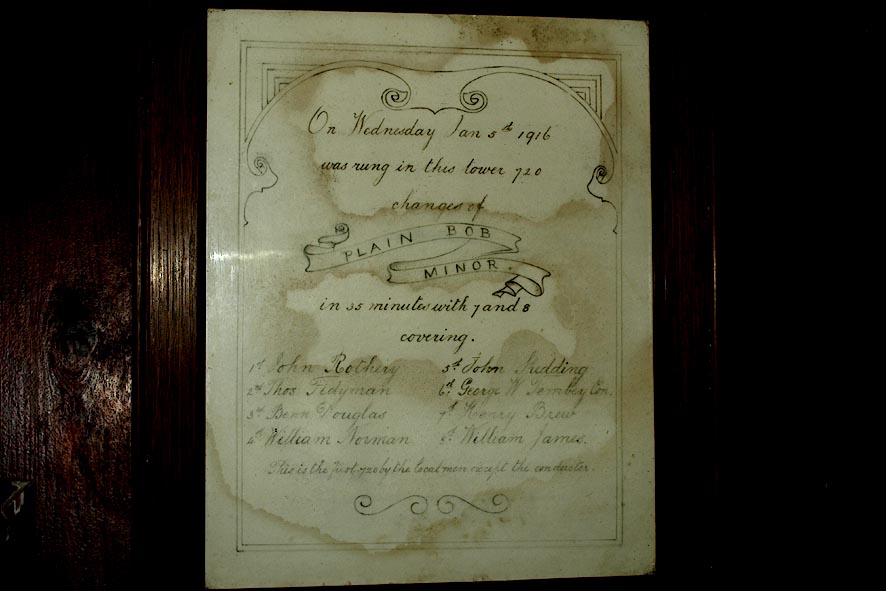 On Wednesday Jan 5th 1916
was rung in this tower 720
changes of
PLAIN BOB
MINOR.
in 35 minutes with 7 and 8
covering.
1st John Rothery
2nd Thos Tidyman
3rd Benn Douglas
4th William Norman
5th John Skidding
6th George W Tembey Con.
7th Henry Brew
8th William James.
This is the first 720 by the local men except the conductor.